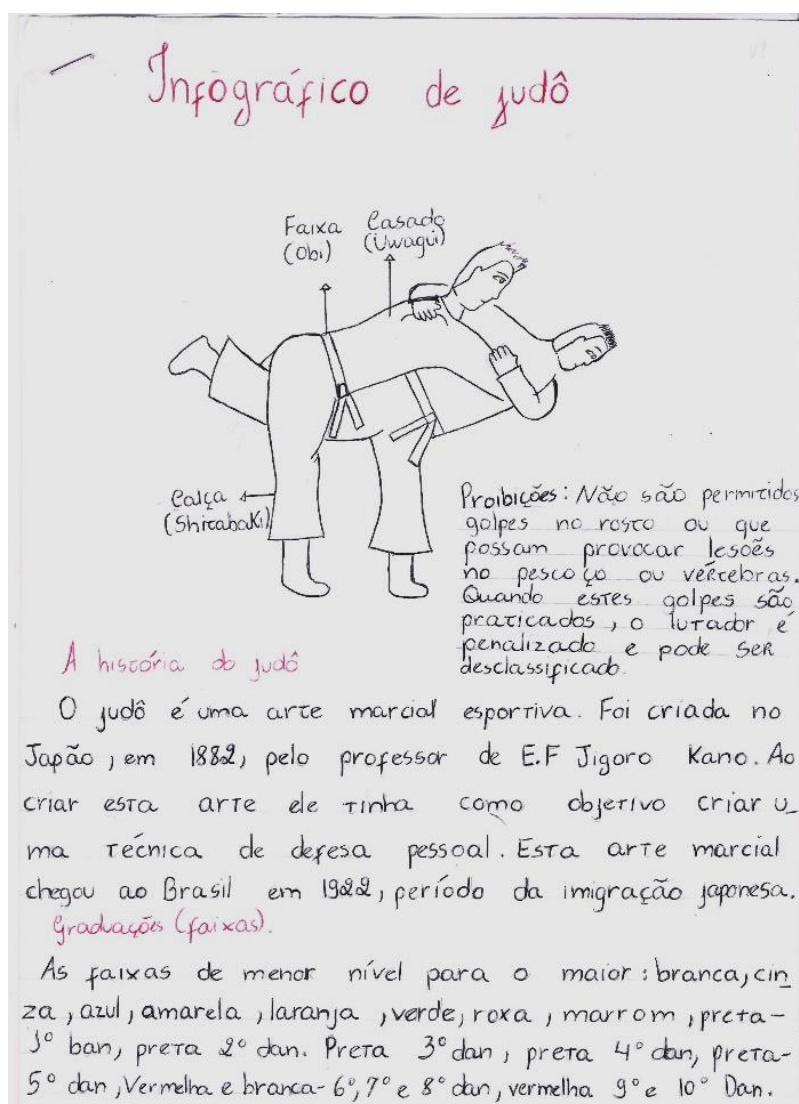 Infográfico de judô
Faixa Casado
(Obi) (Uwagui)
Calça
(Shitabaki)
Proibições: Não são permitidos
golpes no rosto ou que
possam provocar lesoẽs
no pescoço ou vértebras.
Quando estes golpes são
praticados, o lutador é
penalizado e pode ser
desclassificado.
A história do judô
O judô é uma arte marcial esportiva. Foi criada no
Japão, em 1882, pelo professor de E.F Jigoro Kano. Ao
criar esta arte ele tinha como objetivo criar u_
ma técnica de defesa pessoal. Esta arte marcial
chegou ao Brasil em 1922, período da imigração japonesa.
Graduações (faixas).
As faixas de menor nível para o maior: branca, cin
za, azul, amarela, laranja, verde, roxa, marrom, preta-
1º ban, preta 2º dan. Preta 3º dan, preta 4º dan, preta-
5º dan, Vermelha e branca- 6º, 7º e 8º dan, vermelha 9º e 10º Dan.